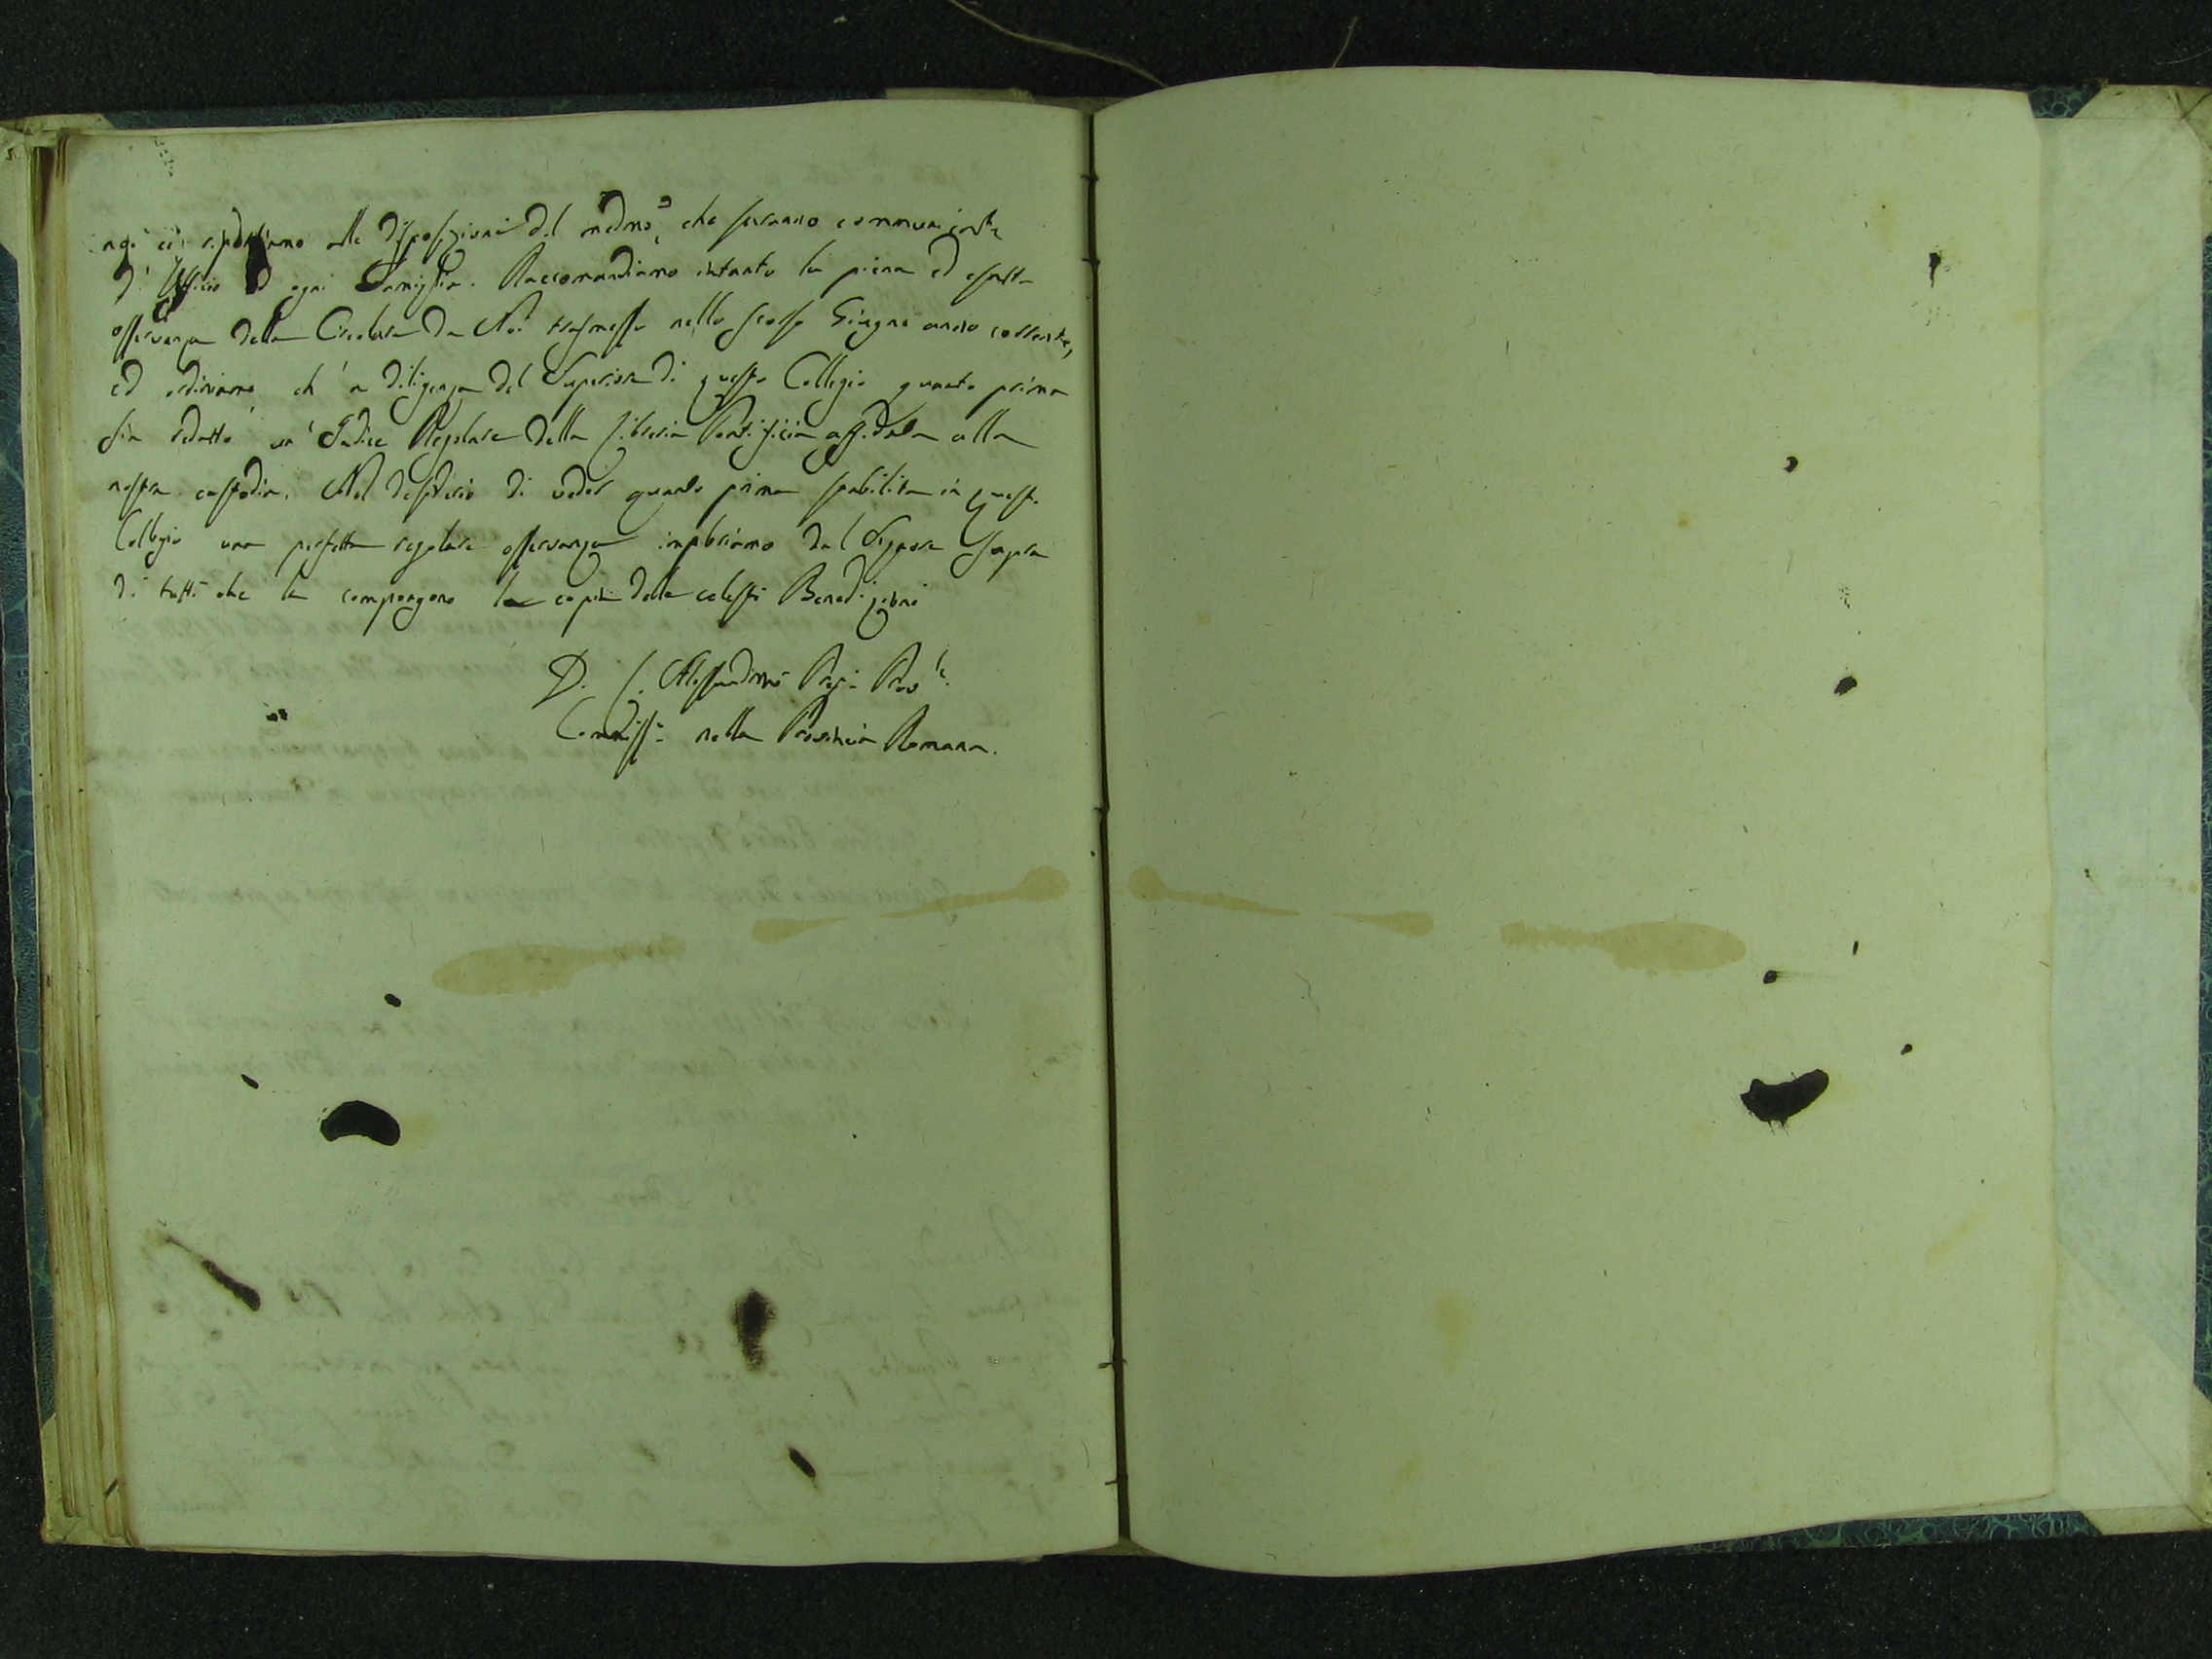 noi ci riportiamo alle disposizioni del medmo, che saranno communicate
d'Ufficio ad ogni Famiglia. Raccomandiamo intanto la piena ed esatta
osservanza della Circolare da Noi trasmessa nello scorso Giugno anno corrente,
ed ordiniamo, ch'a diligenza del Superiore di questo Collegio quanto prima
sia redatto un' Indice Regolare della Libreria Pontificia affidata alla
nostra custodia. Nel desiderio di veder quanto prima stabilita in questo
Collegio una perfetta regolare osservanza imploriamo dal Signore sopra
di tutti che la compongono la copia delle celesti Benedizioni
D. Alessandro Prov.le
Commissº nella Provincia Romana.